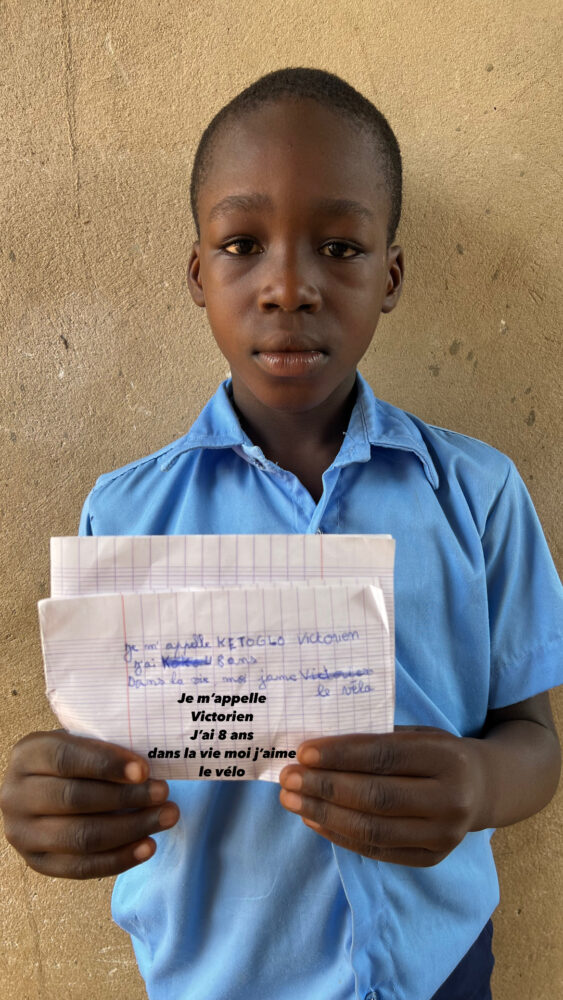 Je m'appelle KETOGLO Victorien
J'ai 8 ans
Dans la vie moi j'aime
le vélo
Je m'appelle
Victorien
J'ai 8 ans
dans la vie moi j'aime
le vélo